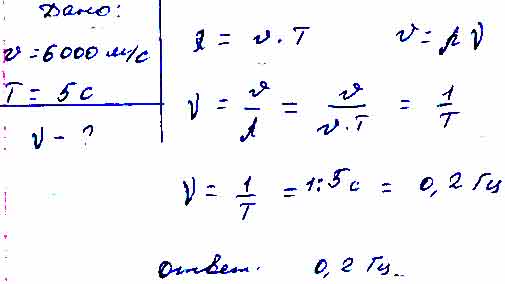 Дано:
v = 6000 м/с
T = 5 с
ν - ?
λ = v · T v = λ ν
ν = v/λ = v/(v · T) = 1/T
ν = 1/T = 1 : 5 с = 0,2 Гц
ответ. 0,2 Гц.